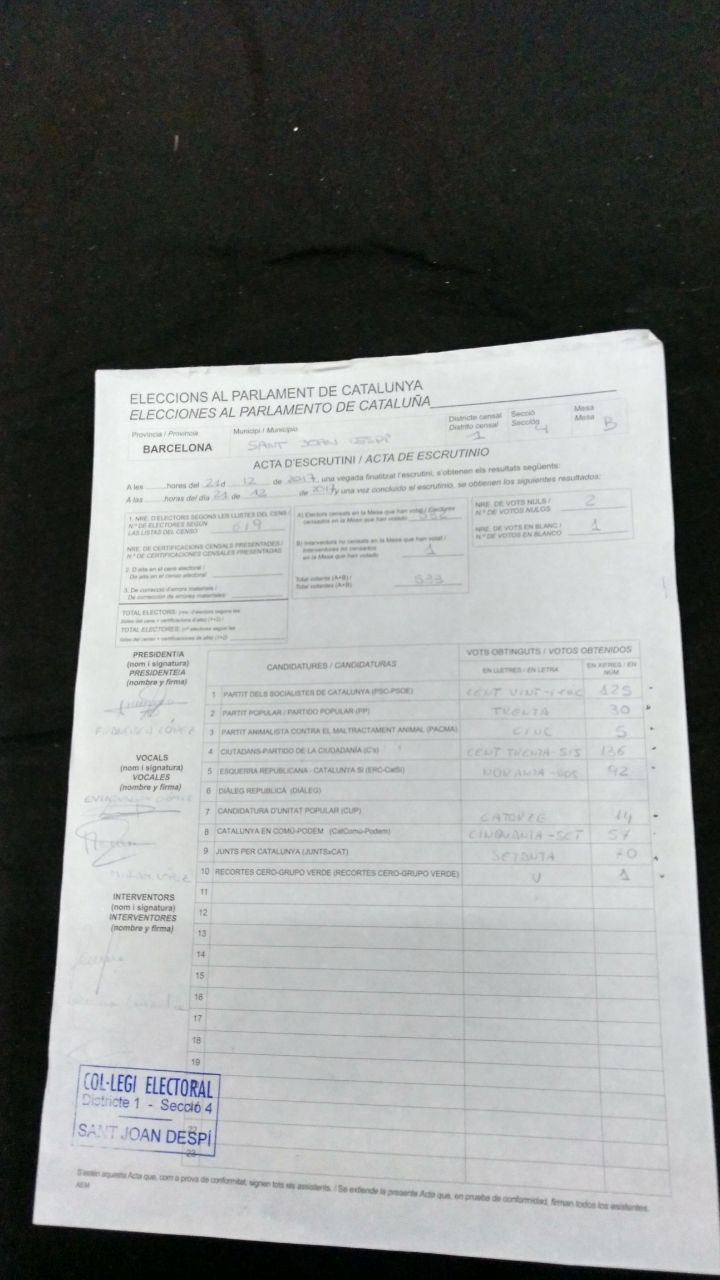 ELECCIONS AL PARLAMENT DE CATALUNYA
ELECCIONES AL PARLAMENTO DE CATALUÑA
Província / Provincia
BARCELONA
Municipi / Municipio
SANT JOAN DESPÍ
Districte censal
Distrito censal
1
Secció
Sección
4
Mesa
Mesa
B
ACTA D'ESCRUTINI / ACTA DE ESCRUTINIO
A les ......hores del 21 d 12 de 2017, una vegada finalitzat l'escrutini, s'obtenen els resultats següents:
A las ......horas del día 21 de 12 de 2017 y una vez concluido el escrutinio, se obtienen los siguientes resultados:
1. NRE. D'ELECTORS SEGONS LES LLISTES DEL CENS /
N.º DE ELECTORES SEGÚN
LAS LISTAS DEL CENSO
619
NRE. DE CERTIFICACIONS CENSALS PRESENTADES /
N.º DE CERTIFICACIONES CENSALES PRESENTADAS
2. D'alta en el cens electoral /
De alta en el censo electoral
3. De correcció d'errors materials /
De corrección de errores materiales:
A) Electors censats en la Mesa que han votat / Electores
censados en la Mesa que han votado 532
B) Interventors no censats en la Mesa que han votat /
Interventores no censados
en la Mesa que han votado 1
Total votants (A+B) /
Total votantes (A+B) 533
NRE. DE VOTS NULS /
N.º DE VOTOS NULOS 2
NRE. DE VOTS EN BLANC /
N.º DE VOTOS EN BLANCO 1
TOTAL ELECTORS: (nre. d'electors segons les
llistes del cens + certificacions d'alta) (1+2) /
TOTAL ELECTORES: (nº electores según las
listas del censo + certificaciones de alta) (1+2)
PRESIDENT/A
(nom i signatura)
PRESIDENTE/A
(nombre y firma)
FRANCISCO LÓPEZ
VOCALS
(nom i signatura)
VOCALES
(nombre y firma)
INTERVENTORS
(nom i signatura)
INTERVENTORES
(nombre y firma)
CANDIDATURES / CANDIDATURAS
VOTS OBTINGUTS / VOTOS OBTENIDOS
EN LLETRES / EN LETRA
EN XIFRES / EN NÚM
1 PARTIT DELS SOCIALISTES DE CATALUNYA (PSC-PSOE) CENT VINT-I-CINC 125
2 PARTIT POPULAR / PARTIDO POPULAR (PP) TRENTA 30
3 PARTIT ANIMALISTA CONTRA EL MALTRACTAMENT ANIMAL (PACMA) CINC 5
4 CIUTADANS-PARTIDO DE LA CIUDADANÍA (C's) CENT TRENTA-SIS 136
5 ESQUERRA REPUBLICANA - CATALUNYA SÍ (ERC-CatSí) NORANTA-DOS 92
6 DIÀLEG REPUBLICÀ (DIÀLEG)
7 CANDIDATURA D'UNITAT POPULAR (CUP) CATORZE 14
8 CATALUNYA EN COMÚ-PODEM (CatComú-Podem) CINQUANTA-SET 57
9 JUNTS PER CATALUNYA (JUNTSxCAT) SETANTA 70
10 RECORTES CERO-GRUPO VERDE (RECORTES CERO-GRUPO VERDE) U 1
11
12
13
14
15
16
17
18
19
22
23
COL·LEGI ELECTORAL
Districte 1 - Secció 4
SANT JOAN DESPÍ
S'estén aquesta Acta que, com a prova de conformitat, signen tots els assistents. / Se extiende la presente Acta que, en prueba de conformidad, firman todos los asistentes.
AEM